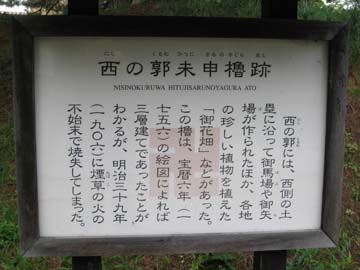 にし くるわ ひつじ さる の やぐら あと
西の郭未申櫓跡
NISINOKURUWA HITUJISARUNOYAGURA ATO
西の郭には、西側の土
塁に沿って御馬場や御矢
場が作られたほか、各地
の珍しい植物を植えた
「御花畑」などがあった。
この櫓は、宝暦六年（一
七五六）の絵図によれば
三層建てであったことが
わかるが、明治三十九年
（一九〇六）に煙草の火の
不始末で焼失してしまった。